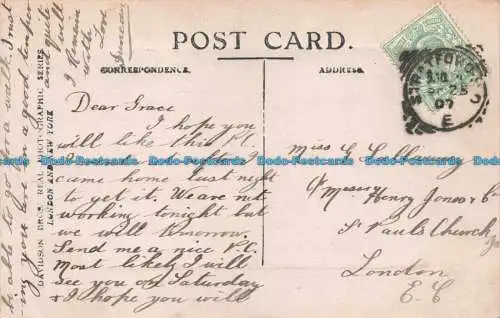 POST CARD.
CORRESPONDENCE.
ADDRESS.
Dear Grace
I hope you
will like this P.C.
came home last night
to get it. We are not
working tonight but
we will tomorrow.
Send me a nice P.C.
Most likely I will
see you on Saturday
& I hope you will
be able to go for a walk. Trust
ing you are in a good temper
and quite
well
I Remain
with
Love
Miss G
Messrs Henry Jones & Co
St Pauls Church
London
E.C.
STRATFORD
25
07
E
DAVIDSON BROS. REAL PHOTOGRAPHIC SERIES.
LONDON AND NEW YORK